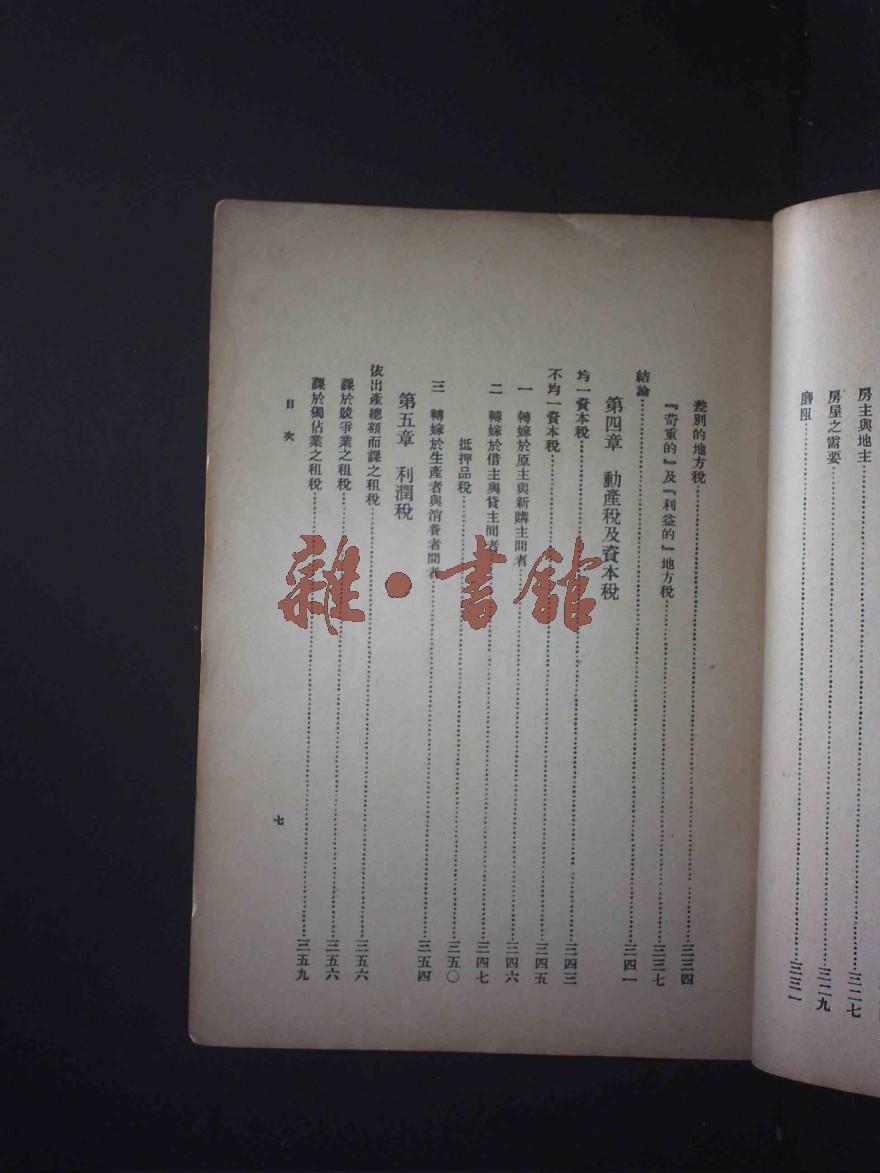 房主與地主……三二七
房屋之需要……三二九
磨阻……三三一
差別的地方稅……三三四
『苛重的』及『利益的』地方稅……三三七
結論……三四一
第四章 動產稅及資本稅
均一資本稅……三四三
不均一資本稅……三四五
一 轉嫁於原主與新購主間者……三四六
二 轉嫁於借主與貸主間者……三四七
抵押品稅……三五〇
三 轉嫁於生產者與消費者間者……三五四
第五章 利潤稅
依出產總額而課之租稅……三五六
課於競爭業之租稅……三五六
課於獨佔業之租稅……三五九
目次
七
雜·書館